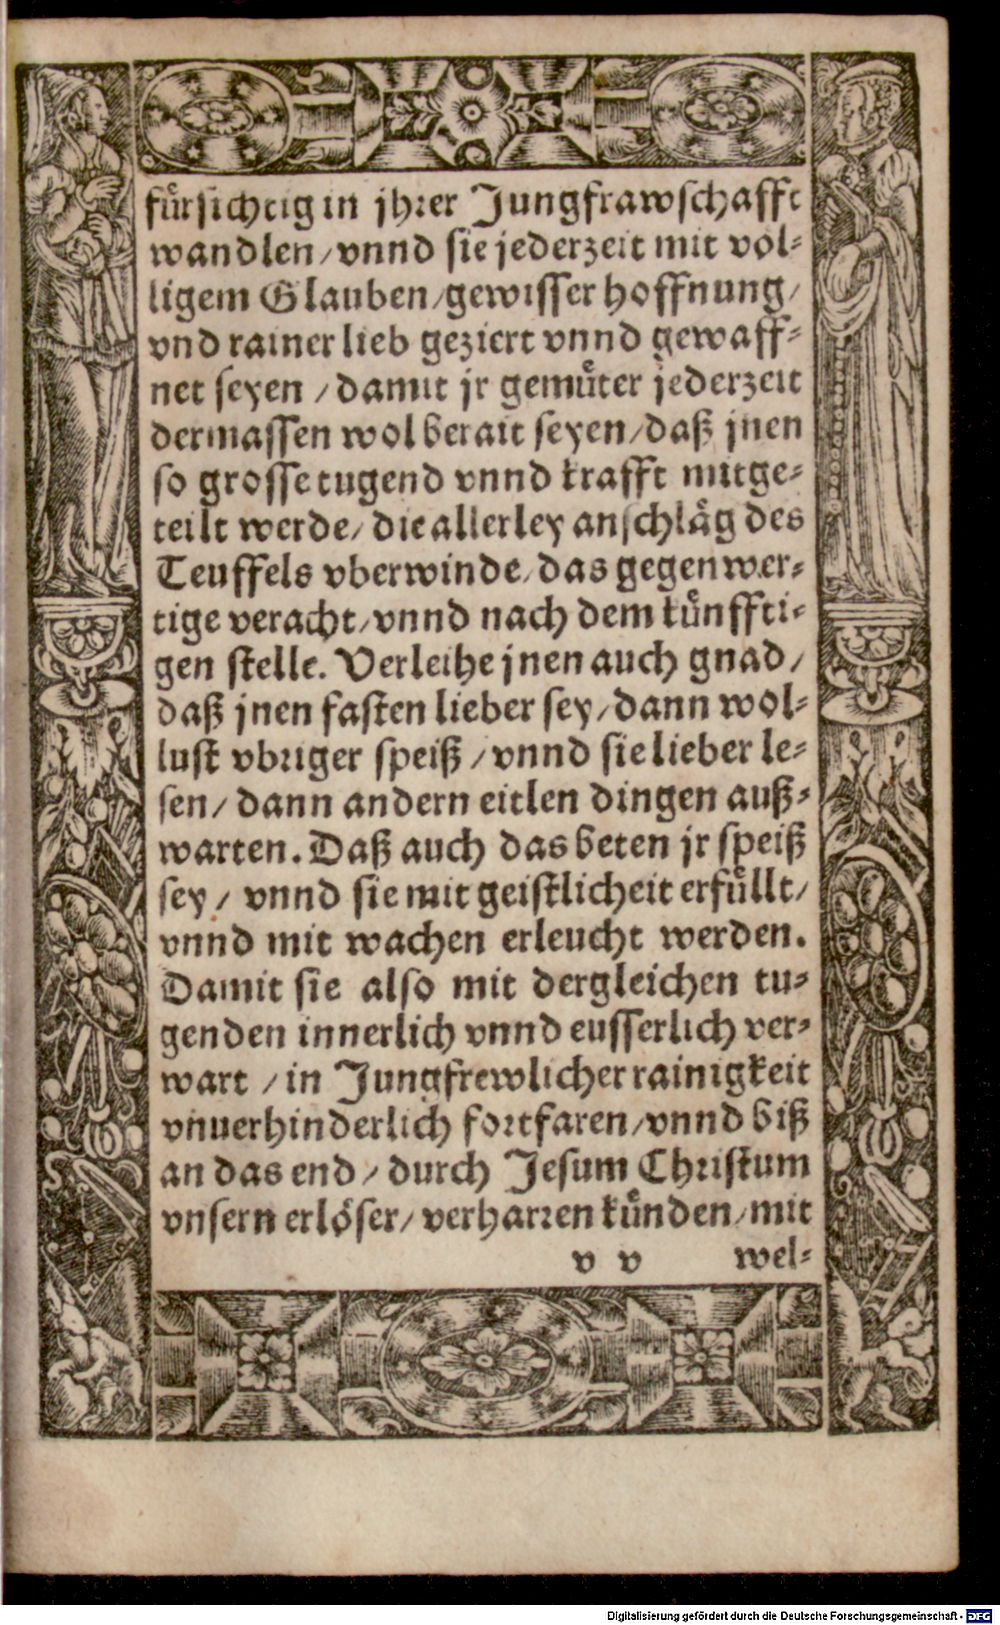 fuͤrsichtig in jhrer Jungfrawschafft
wandlen/vnnd sie jederzeit mit vol⸗
ligem Glauben/gewisser hoffnung/
vnd rainer lieb geziert vnnd gewaff⸗
net seyen / damit jr gemuͤter jederzeit
dermassen wol berait seyen/daß jnen
so grosse tugend vnnd krafft mitge⸗
teilt werde/ die allerley anschlaͤg des
Teuffels vberwinde/das gegenwer⸗
tige veracht/vnnd nach dem kuͤnffti⸗
gen stelle. Verleihe jnen auch gnad/
daß jnen fasten lieber sey/dann wol⸗
lust vbriger speiß /vnnd sie lieber le⸗
sen/ dann andern eitlen dingen auß⸗
warten. Daß auch das beten jr speiß
sey/ vnnd sie mit geistlicheit erfuͤllt/
vnnd mit wachen erleucht werden.
Damit sie also mit dergleichen tu⸗
genden innerlich vnnd eusserlich ver⸗
wart /in Jungfrewlicher rainigkeit
vnuerhinderlich fortfaren/vnnd biß
an das end/ durch Jesum Christum
vnsern erloͤser/ verharren kuͤnden/mit
v v wel⸗
Digitalisierung gefördert durch die Deutsche Forschungsgemeinschaft - DFG